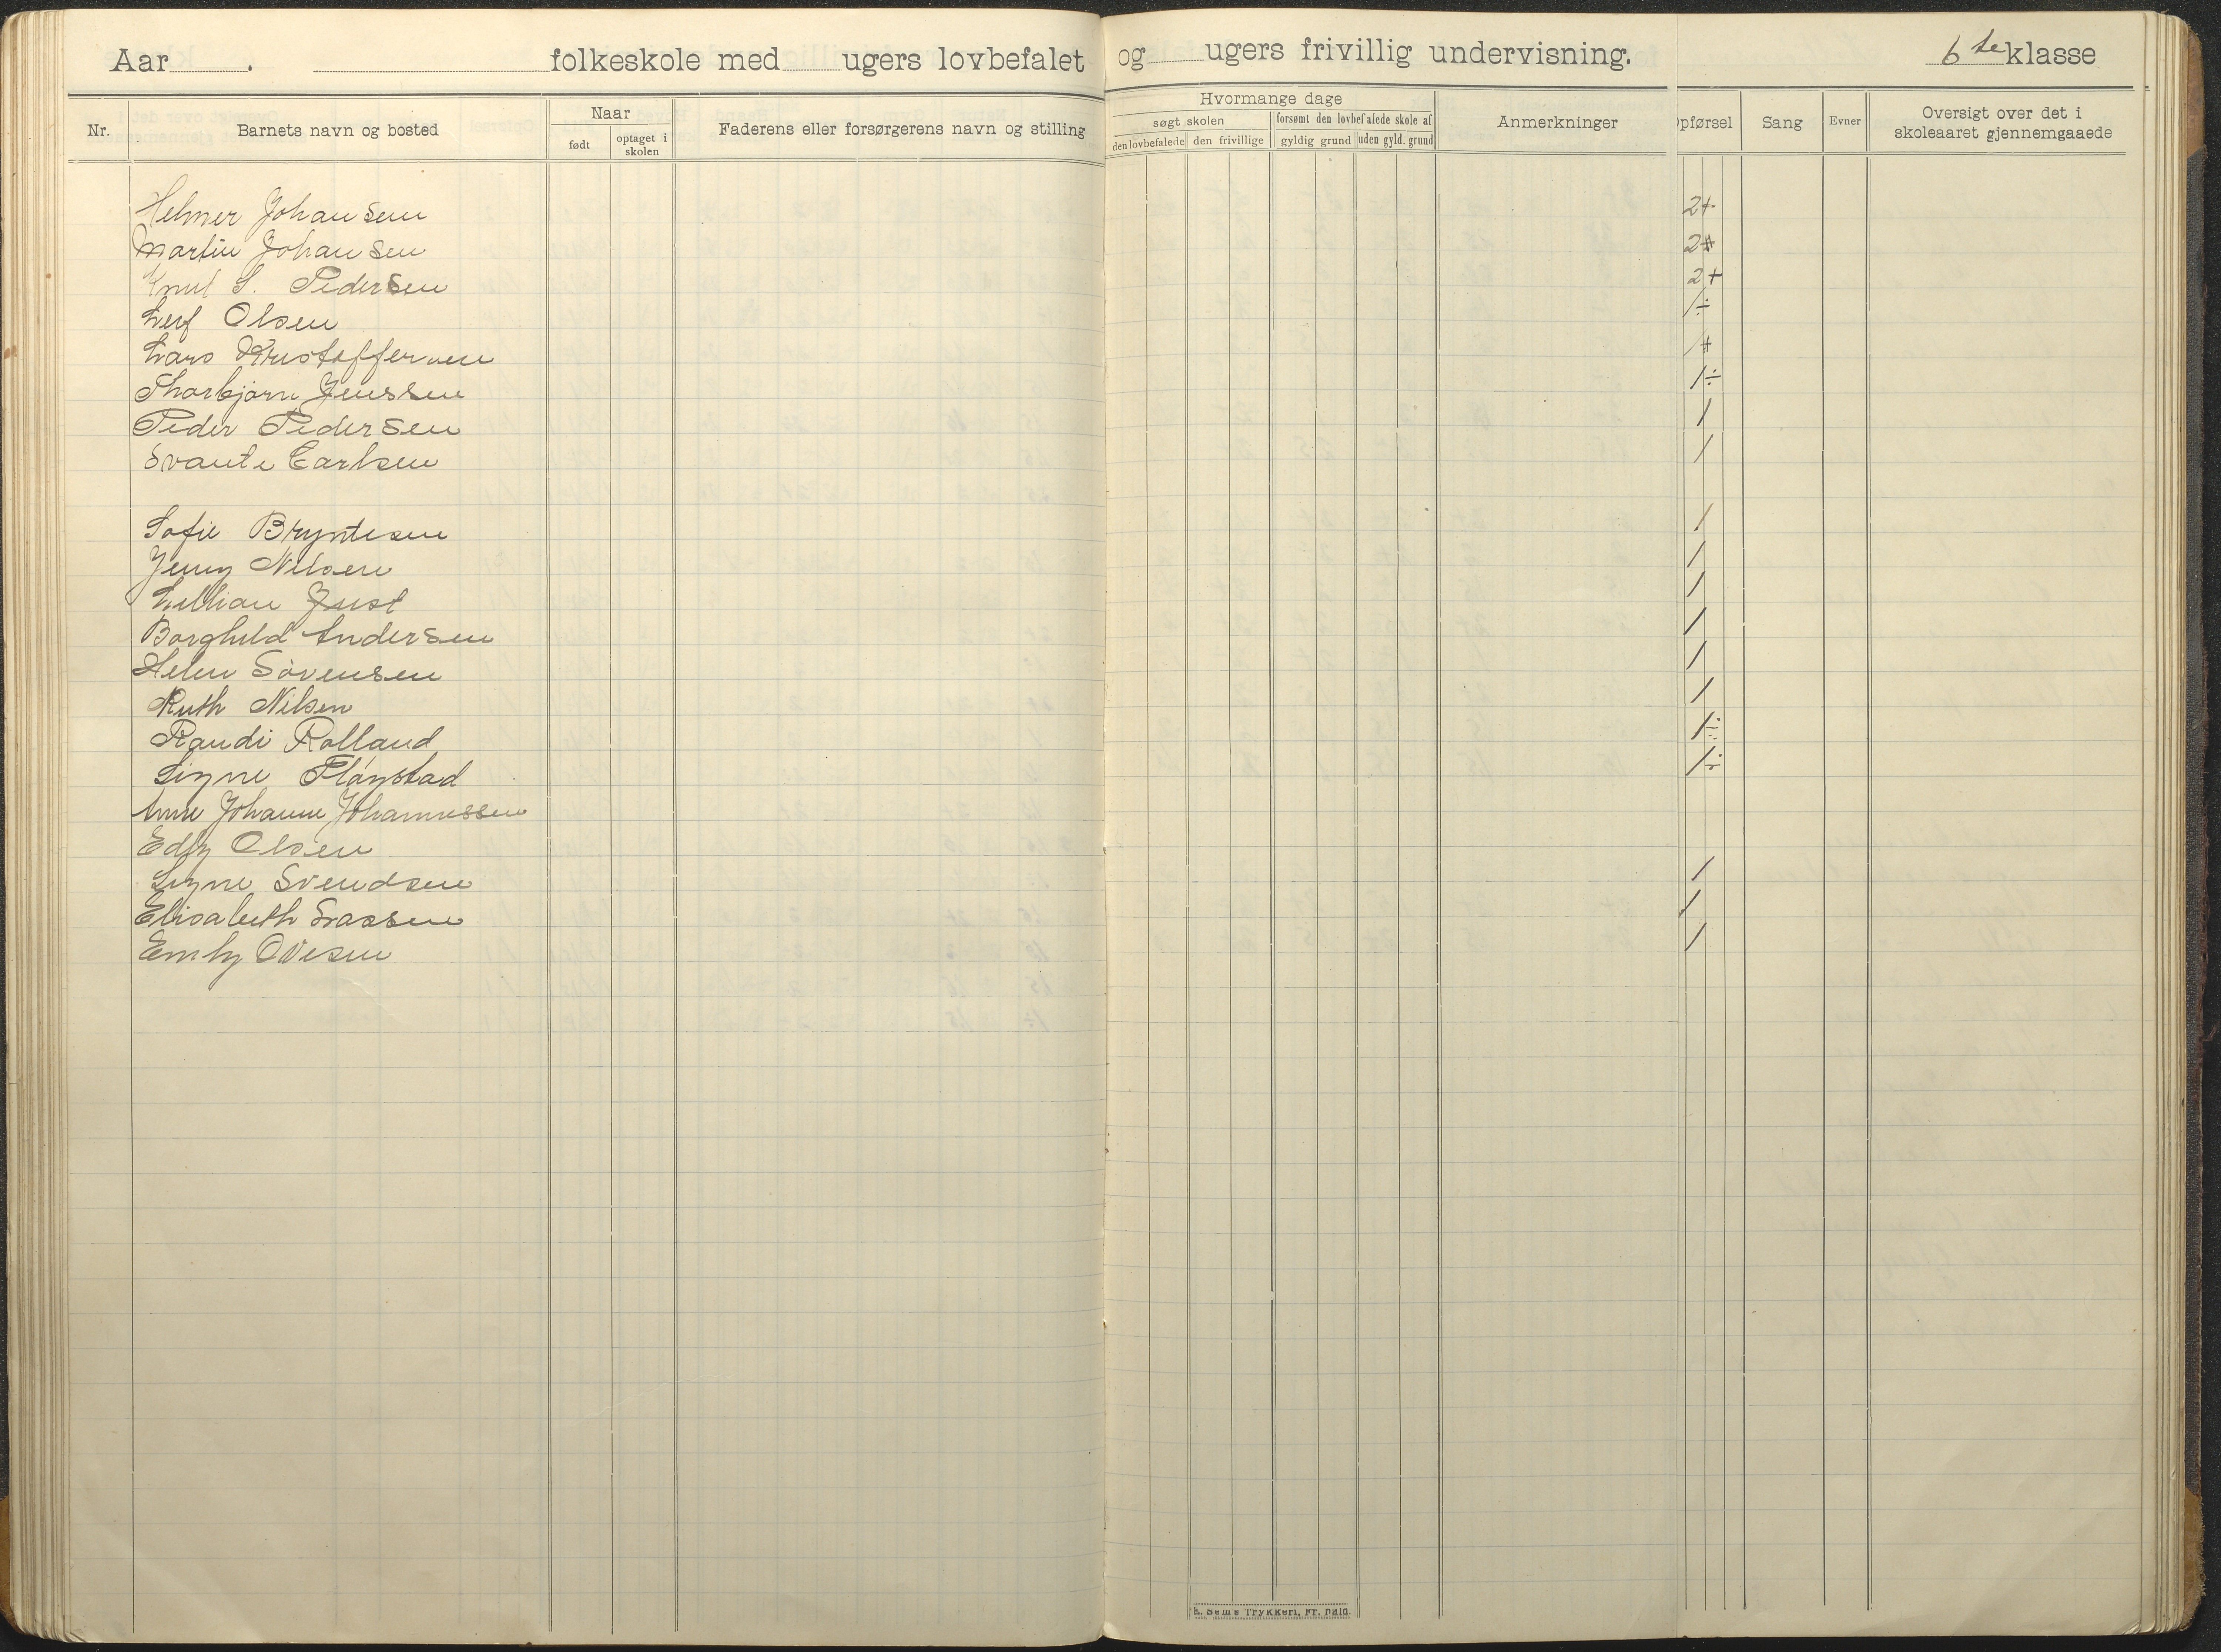 Aar . folkeskole med ugers lovbefalet og ugers frivillig undervisning. 6te klasse
Nr. Barnets navn og bosted Naar født optaget i skolen Faderens eller forsørgerens navn og stilling Hvormange dage søgt skolen den lovbefalede den frivillige forsømt den lovbefalede skole af gyldig grund uden gyld. grund Anmerkninger Opførsel Sang Evner Oversigt over det i skoleaaret gjennemgaaede
Helmer Johansen 2+
Martin Johansen 2+
Knut S. Pedersen 2+
Leif Olsen 1÷
Lars Kristoffersen 1+
Thorbjørn Jenssen 1÷
Peder Pedersen 1
Svante Carlsen 1
Sofie Bryntesen 1
Jenny Nilsen 1
Lillian Just 1
Borghild Andersen 1
Helen Sørensen 1
Ruth Nilsen 1
Randi Rolland 1÷
Signe Fløystad 1÷
Anne Johanne Johannessen
Edly Olsen
Signe Svendsen 1
Elisabeth Lassen 1
Emly Ovesen 1
E. Sems Trykkeri, Fr. hald.